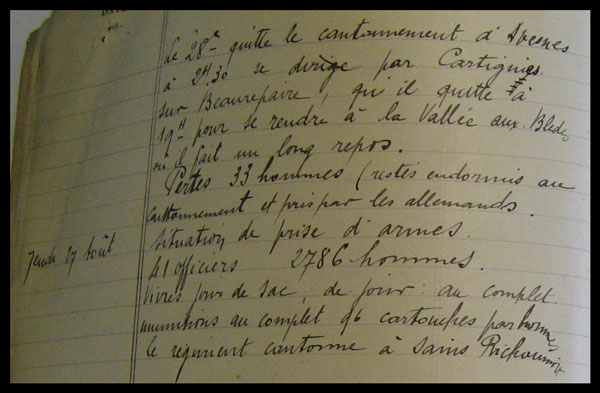 Le 28e quitte le cantonnement d'Avesnes
à 2H.30 se dirige par Cartignies
sur Beaurepaire, qu'il quitte à
19H pour se rendre à la Vallée aux Bleds,
où il fait un long repos.
Pertes 33 hommes (restés endormis au
cantonnement et pris par les allemands.
Situation de prise d'armes.
Jeudi 27 Août
officiers 2786 hommes.
Vivres jour de sac, de jour : au complet
munitions au complet 96 cartouches par homme,
le régiment cantonne à Sains Richaumont